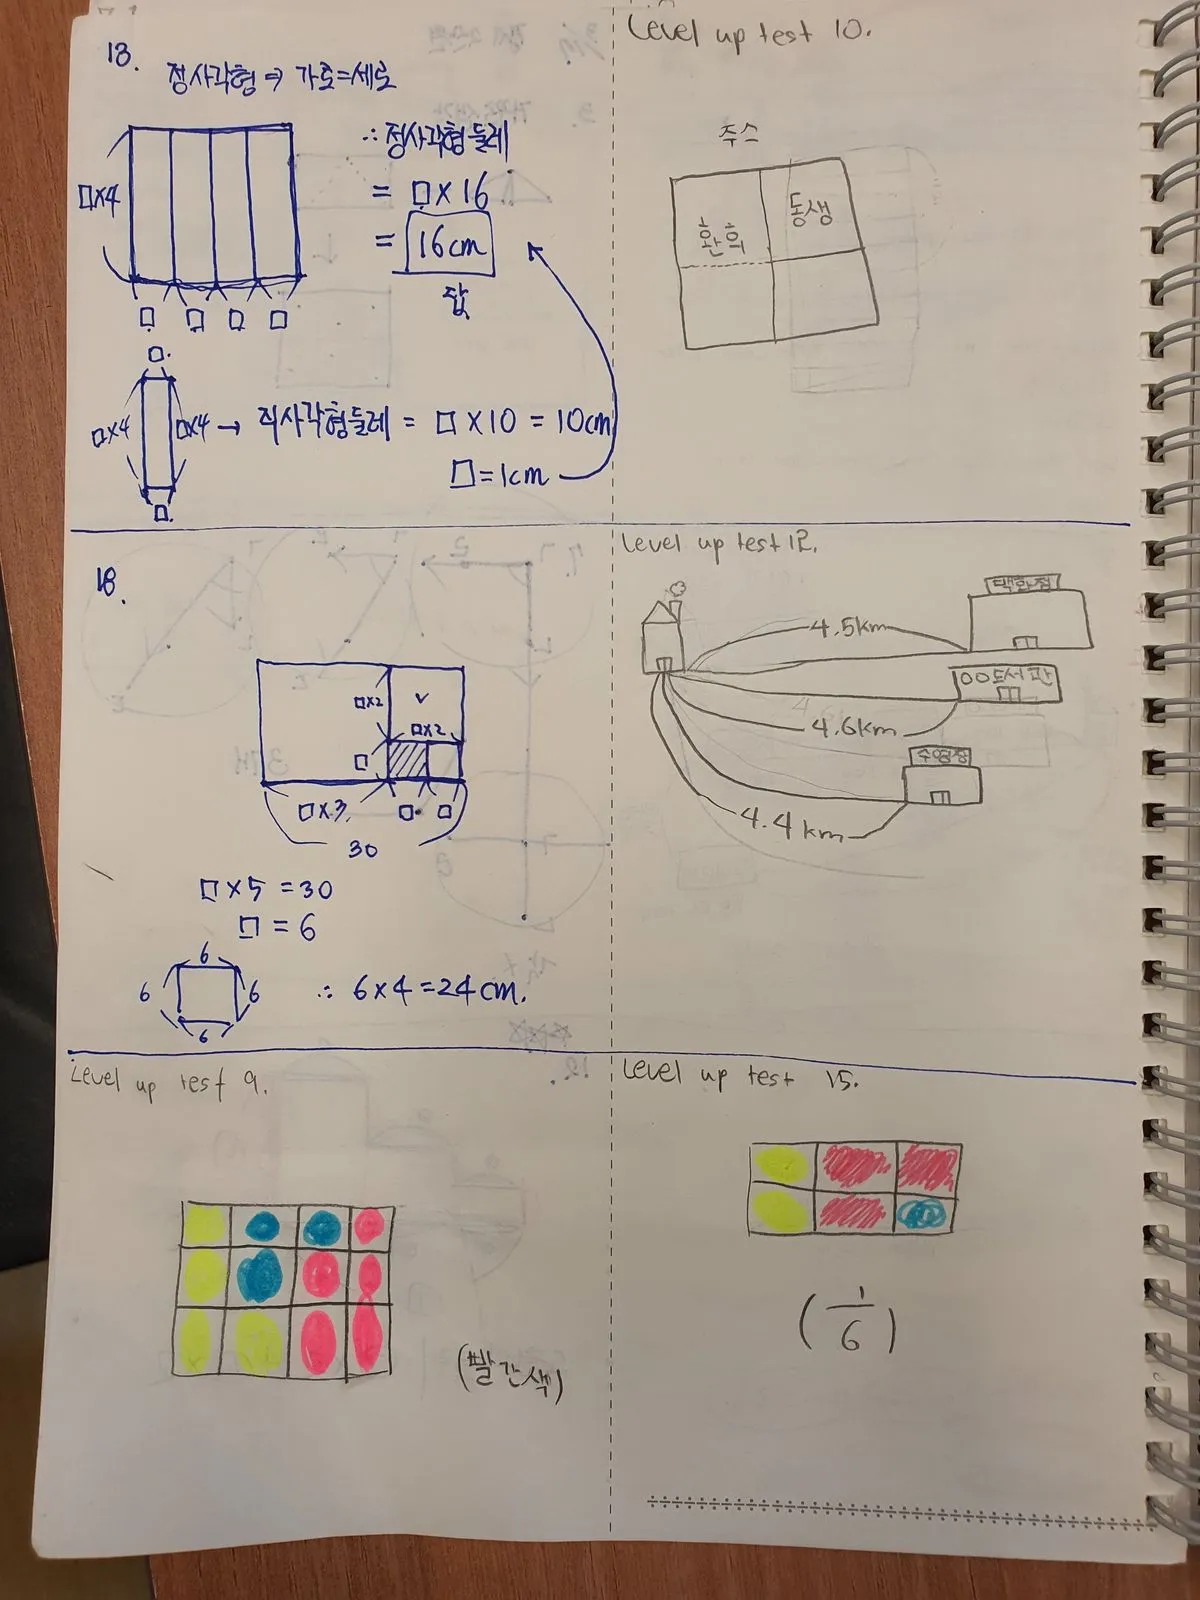 13.
정사각형 ⇒ 가로=세로
□×4
∴ 정사각형 둘레
= □×16
= 16cm
답
□ □ □ □
□.
□×4 □×4 → 직사각형둘레 = □×10 = 10cm
□=1cm
□.
18.
□×2 ✓
□×2
□
□×3. □. □
30
□×5 =30
□ = 6
6
6 6
6
∴ 6×4=24cm.
Level up test 9.
(빨간색)
Level up test 10.
주스
환희 동생
Level up test 12.
백화점
4.5km
○○도서관
4.6km
수영장
4.4km
Level up test 15.
(1/6)